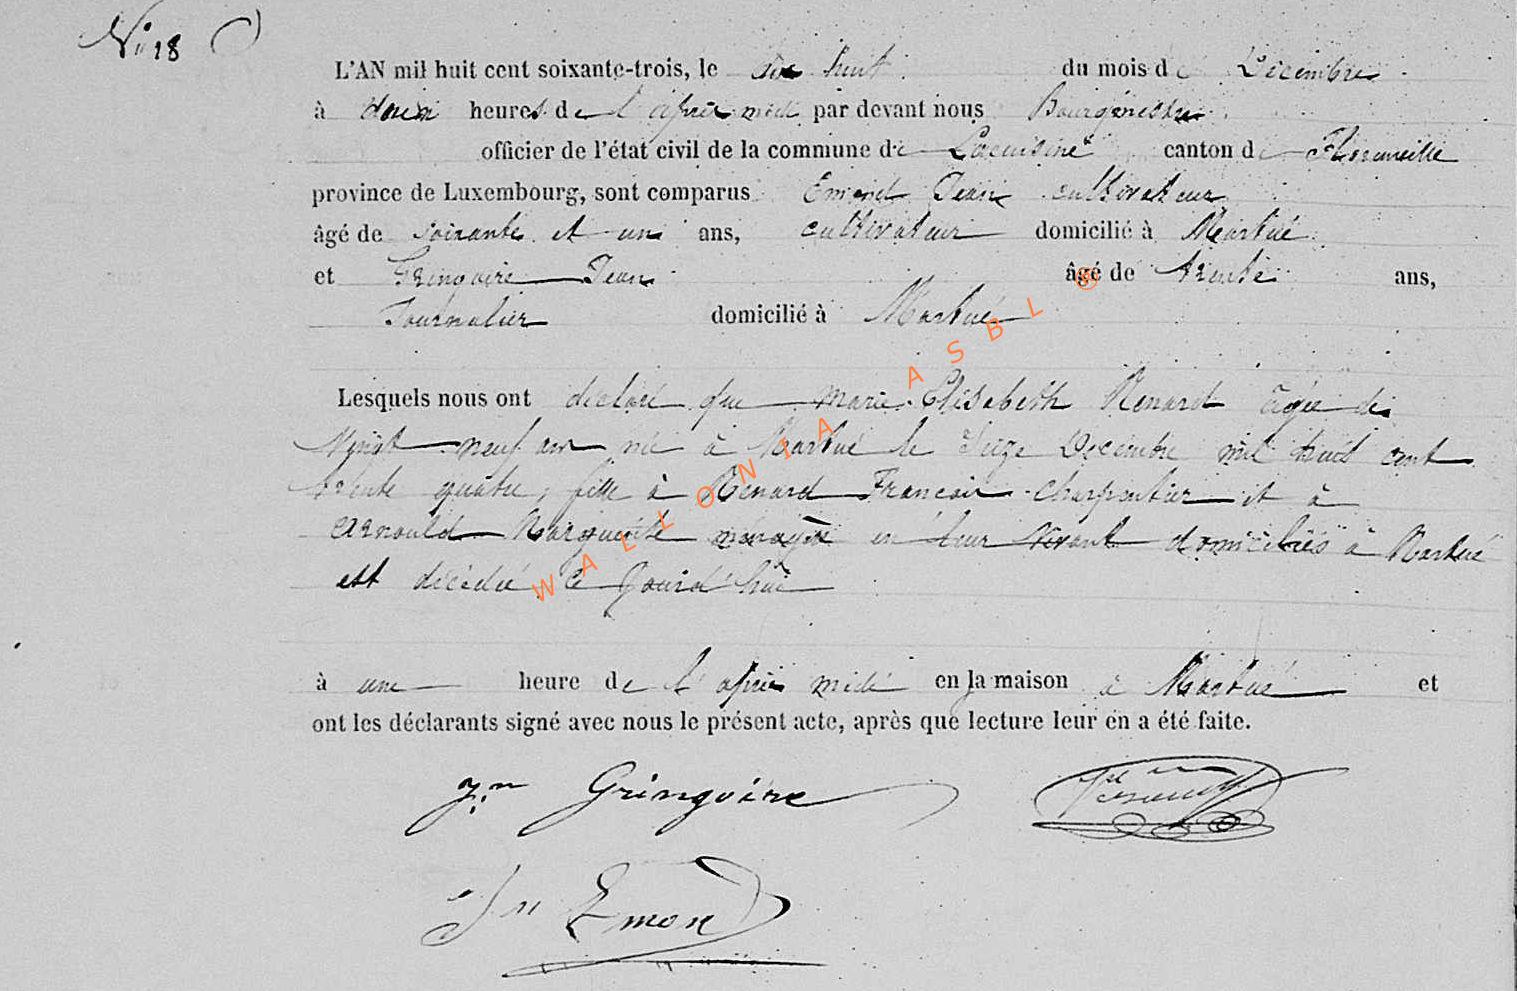 N° 18
L'AN mil huit cent soixante-trois, le dix huit du mois de Décembre
à deux heures de l'après midi par devant nous Bourgmestre
officier de l'état civil de la commune de Lacuisine canton de Florenville
province de Luxembourg, sont comparus Emond Jean cultivateur
âgé de soixante et un ans, cultivateur domicilié à Martué
et Gringoire Jean âgé de trente ans,
Journalier domicilié à Martué
Lesquels nous ont déclaré que Marie Elisabeth Renard âgée de
vingt neuf ans née à Martué le Seize Décembre mil huit cent
trente quatre, fille à Renard Francois charpentier et à
Arnould Marguerite ménagère en leur vivant domiciliés à Martué
est décédée ce jourd'hui
à une heure de l'après midi en la maison à Martué et
ont les déclarants signé avec nous le présent acte, après que lecture leur en a été faite.
Jn Gringoire
Jn Emond
WALLONIA ASBL ®